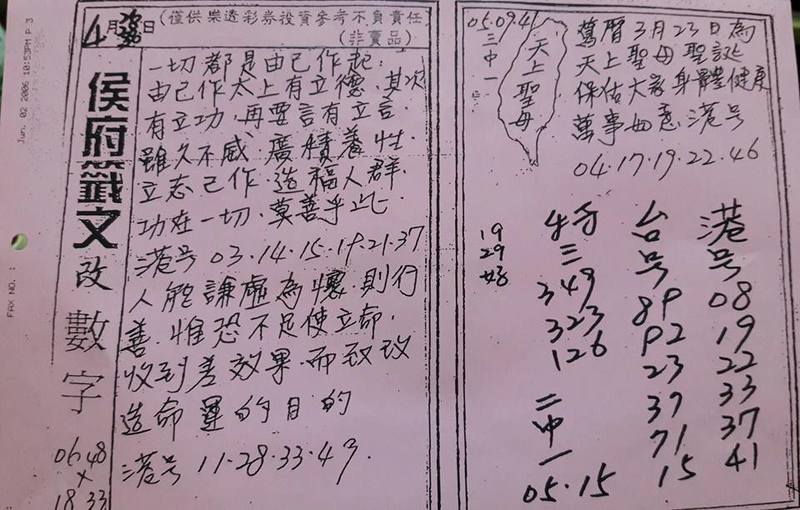 Jun. 02 2006 10:53PM P 3
FAX NO. :
4月 日(僅供樂透彩券投資參考不負責任)
(非賣品)
侯府籤文改數字
06 48
×
18 33
一切都是由己作起:
由己作太上有立德.其次
有立功.再要言有立言.
雖久不感.廣積養性.
立志己作.造福人群.
功在一切.莫善乎此.
港号 03.14.15.19.21.37
人能謙虛為懷則行
善.惟恐不足使立命.
收到善效果.而致改
造命運的目的
港号 11.28.33.49.
05.09.41
三中一
天上聖母
萬曆3月23日為
天上聖母聖誕
保佑大家身體健康
萬事如意 港号
04.17.19.22.46
19
29
三
349
323
126
二中一
05.15
台号
89
92
23
37
71
15
港号
08
19
22
33
37
41